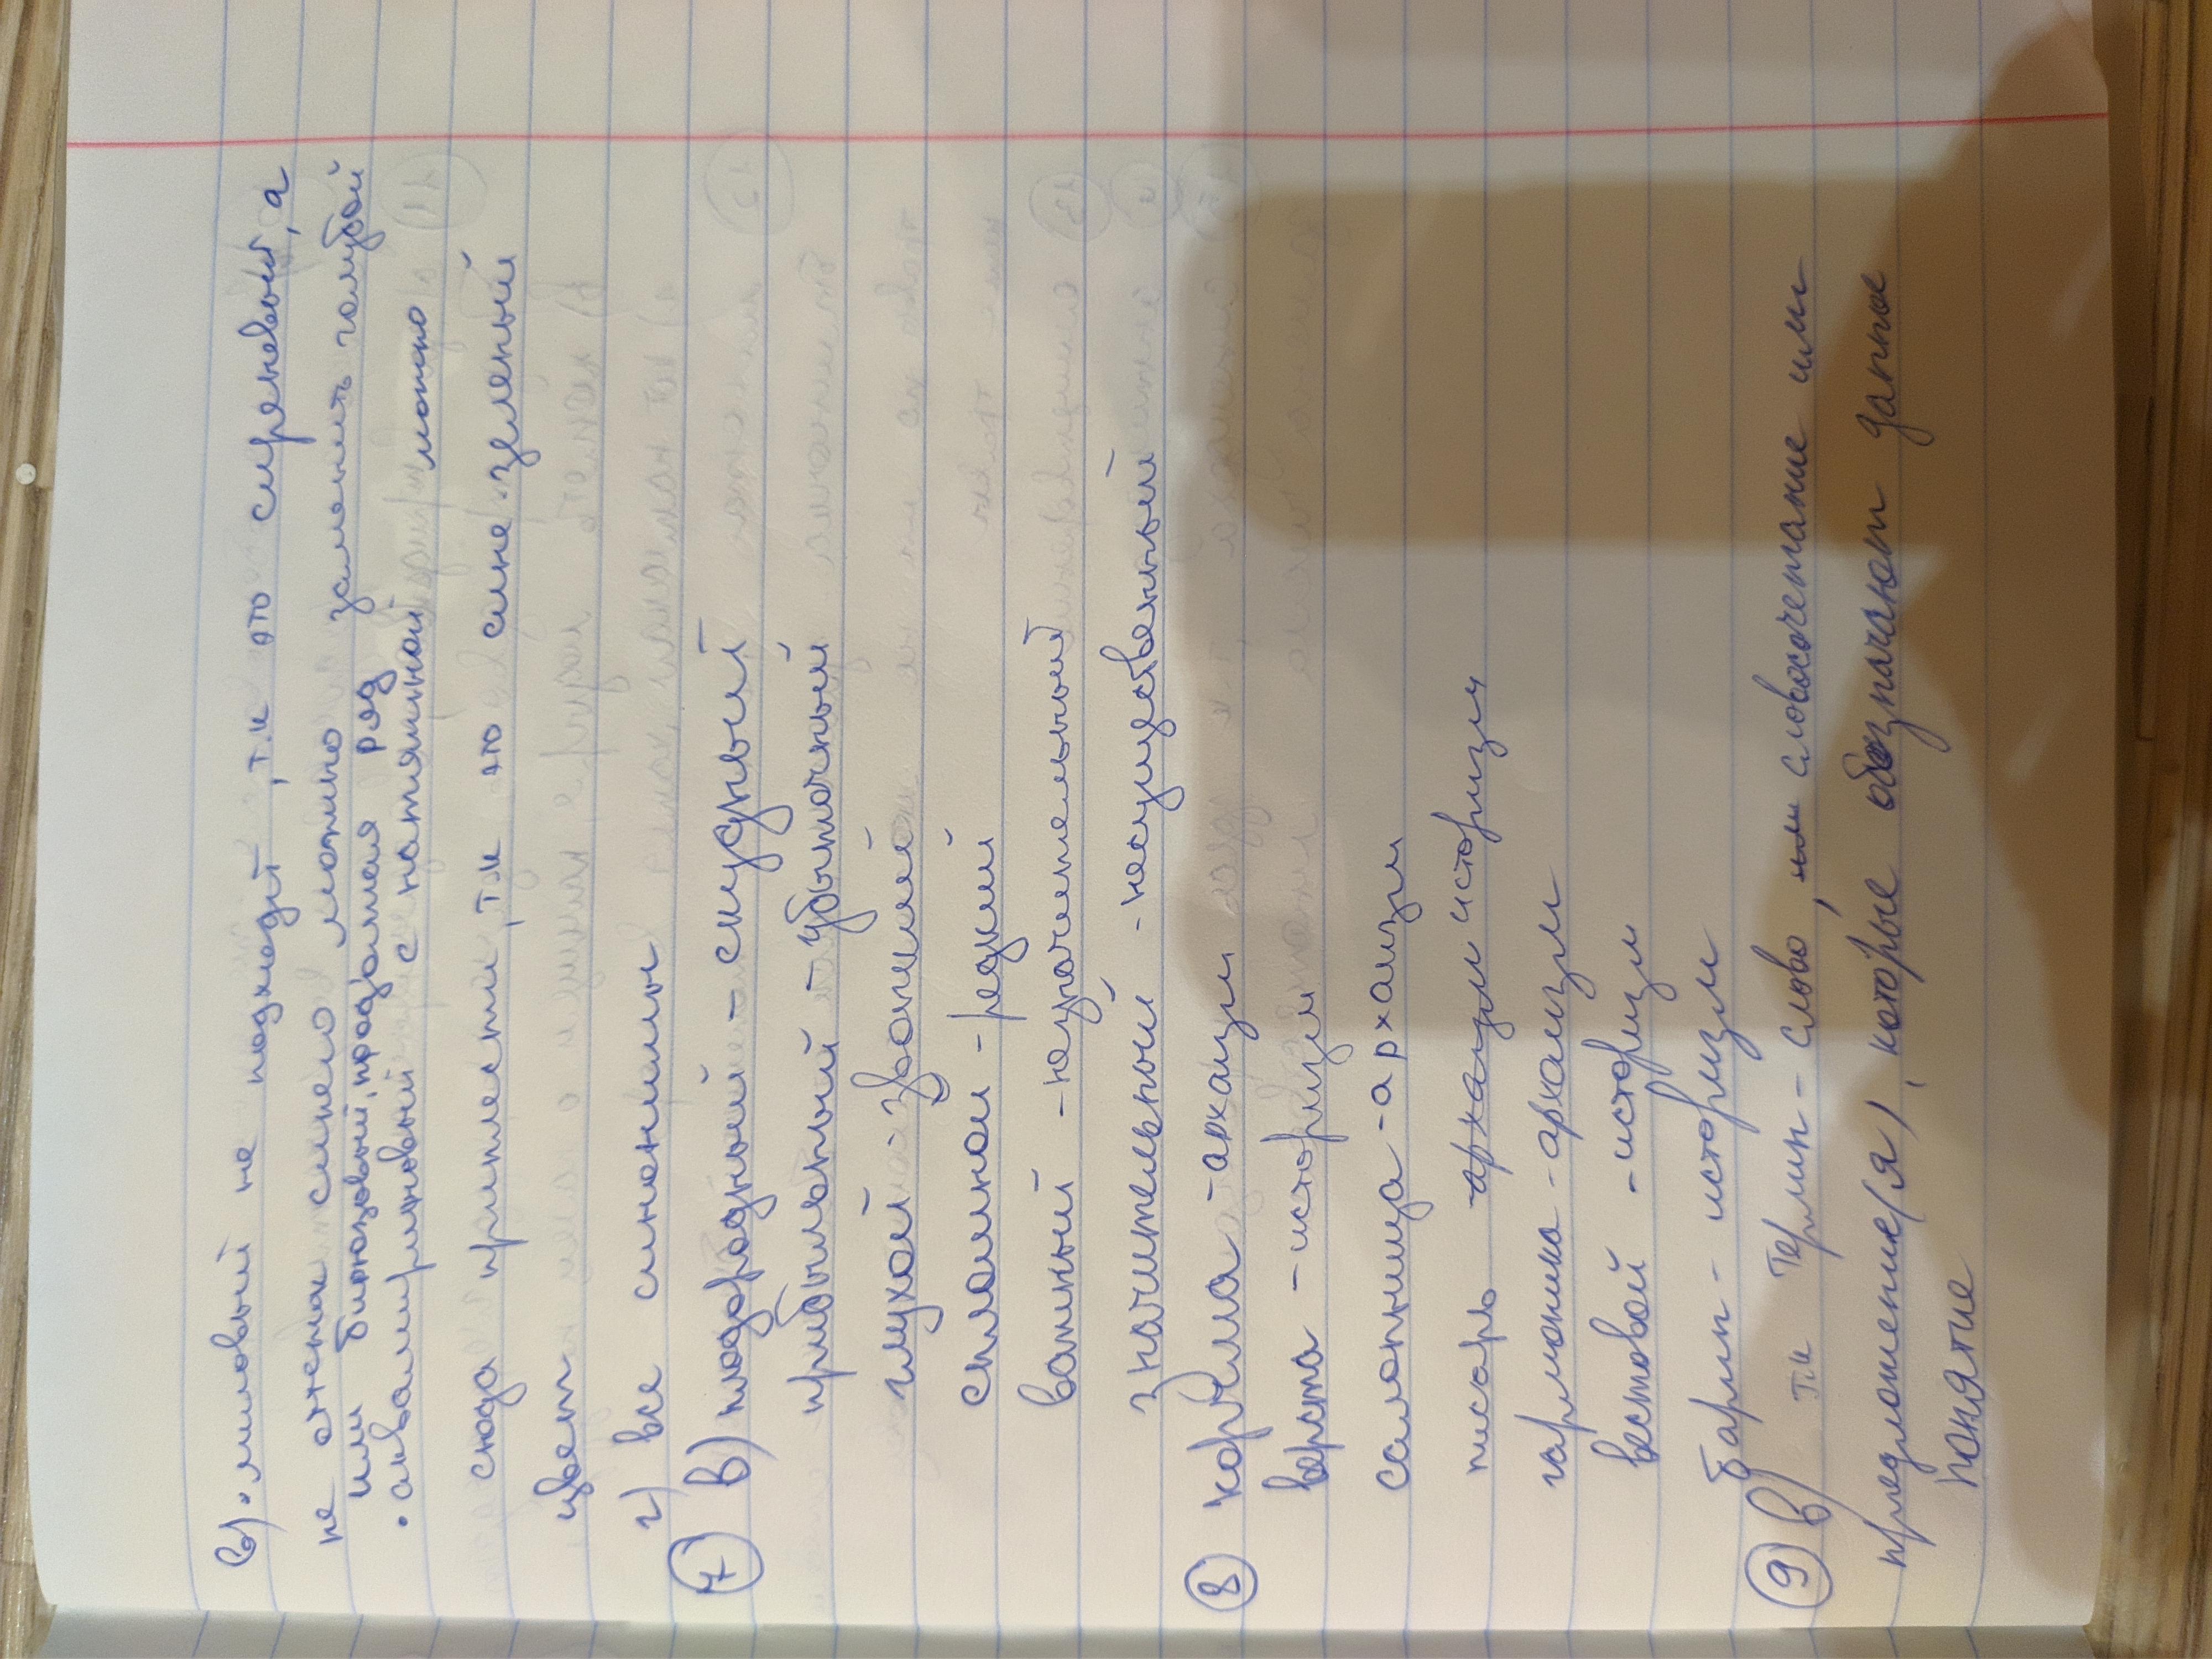 в) • лиловый не подходит, т.к это сиреневый, а
не оттенок синего можно заменить голубой
или бирюзовый, продолжая ряд
• аквамариновый с натяжкой можно
сюда приплести, т.к это сине-зеленый
цвет
г) все синонимы
7 В) плодородный - скудный
прибыльный - убыточный
глухой - звонкий
сильной - редкий
важный - незначительный
значительный - несущественный
8 корвма - архаизм
верста - историзм
салонница - архаизм
писарь архаизм историзм
гармоника - архаизм
вестовой - историзм
барин - историзм
9 В) т.к Термин - слово, или словосочетание или
предложение(я), которые обозначают данное
понятие